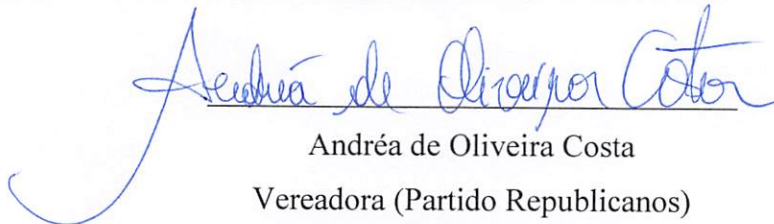 Andréa de Oliveira Costa
Andréa de Oliveira Costa
Vereadora (Partido Republicanos)